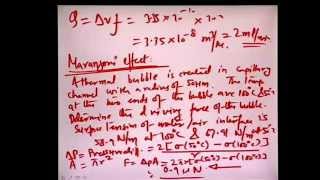 Q = ΔVf = 3.35 × 10
= 3.35 × 10⁻⁸ m³/sec. = 2 ml/min
Marangoni effect:
A thermal bubble is created in capillary
channel with a radius of 50μm. The temp
at the two ends of the bubble are 100°C & 50°C
Determine the driving force of the bubble.
Surface tension of water/air interface is
58.9 N/m at 100°C & 67.9 N/m at 50°C
ΔP = Pressure = 2[σ(50°C) - σ(100°C)]
A = πr² F = ΔpA = 2πr[σ(50°C) - σ(100°C)]
= 0.9 μN